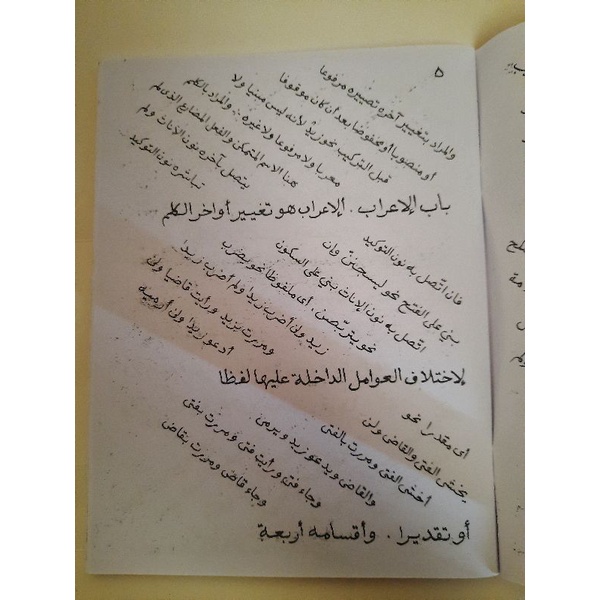 ٥
والمراد بتغيير آخره تصييره مرفوعا
أو منصوبا أو مخفوضا بعد أن كان موقوفا
قبل التركيب نحو زيد لأنه ليس مبنيا ولا
معربا ولا مرفوعا ولا غيره والمراد بالكلم
هنا الاسم المتمكن والفعل المضارع الذى لم
يتصل بآخره نون الإناث ولم
تباشره نون التوكيد
باب الإعراب . الإعراب هو تغيير أواخر الكلم
فان اتصل به نون التوكيد
بني على الفتح نحو ليسجننّ وإن
اتصل به نون الإناث بني على السكون
نحو يتربّصن . أى ملفوظا نحو يضرب
زيد ولن أضرب زيدا ولم أضرب زيدا
ومررت بزيد ورأيت قاضيا ولن
أدعو زيدا ولن أرميه
لاختلاف العوامل الداخلة عليها لفظا
أى مقدرا نحو
يخشى الفتى والقاضى ولن
أخشى الفتى ومررت بالفتى
والقاضى ويدعو زيد ويرمى
وجاء فتى ورأيت فتى ومررت بفتى
وجاء قاض ومررت بقاض
أو تقديرا . وأقسامه أربعة